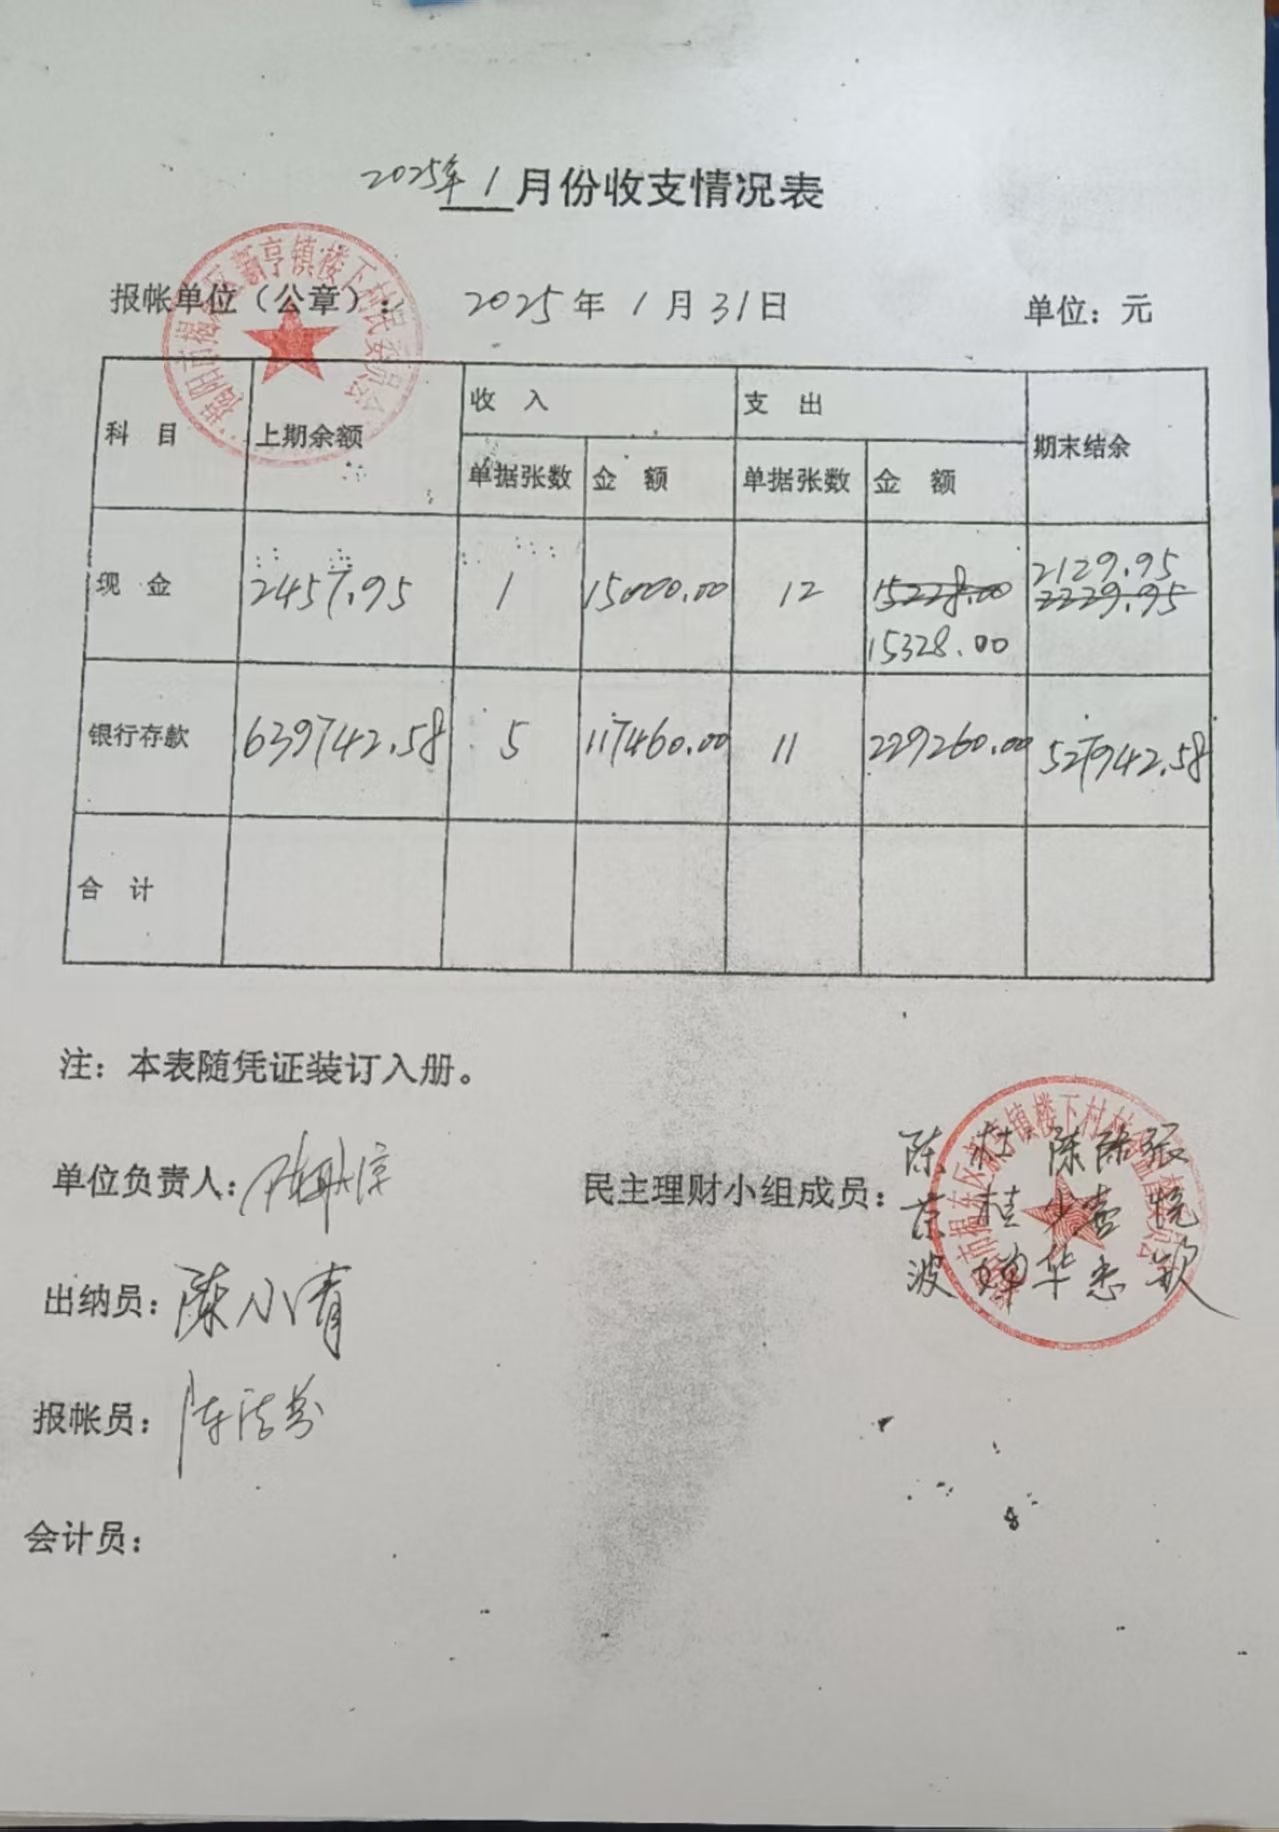 2025年1月份收支情况表
报帐单位（公章）： 2025年1月31日 单位：元
揭阳市揭东区新亨镇楼下村民委员会
科 目 上期余额 收 入 支 出 期末结余
单据张数 金 额 单据张数 金 额
现 金 2457.95 1 15000.00 12 15228.00 2129.95
15328.00 2229.95
银行存款 639742.58 5 117460.00 11 229260.00 527942.58
合 计
注：本表随凭证装订入册。
单位负责人：陈
民主理财小组成员：
陈 桂 陈 陈 张
桂
波 华 钦
出纳员：陈小青
报帐员：陈
会计员：